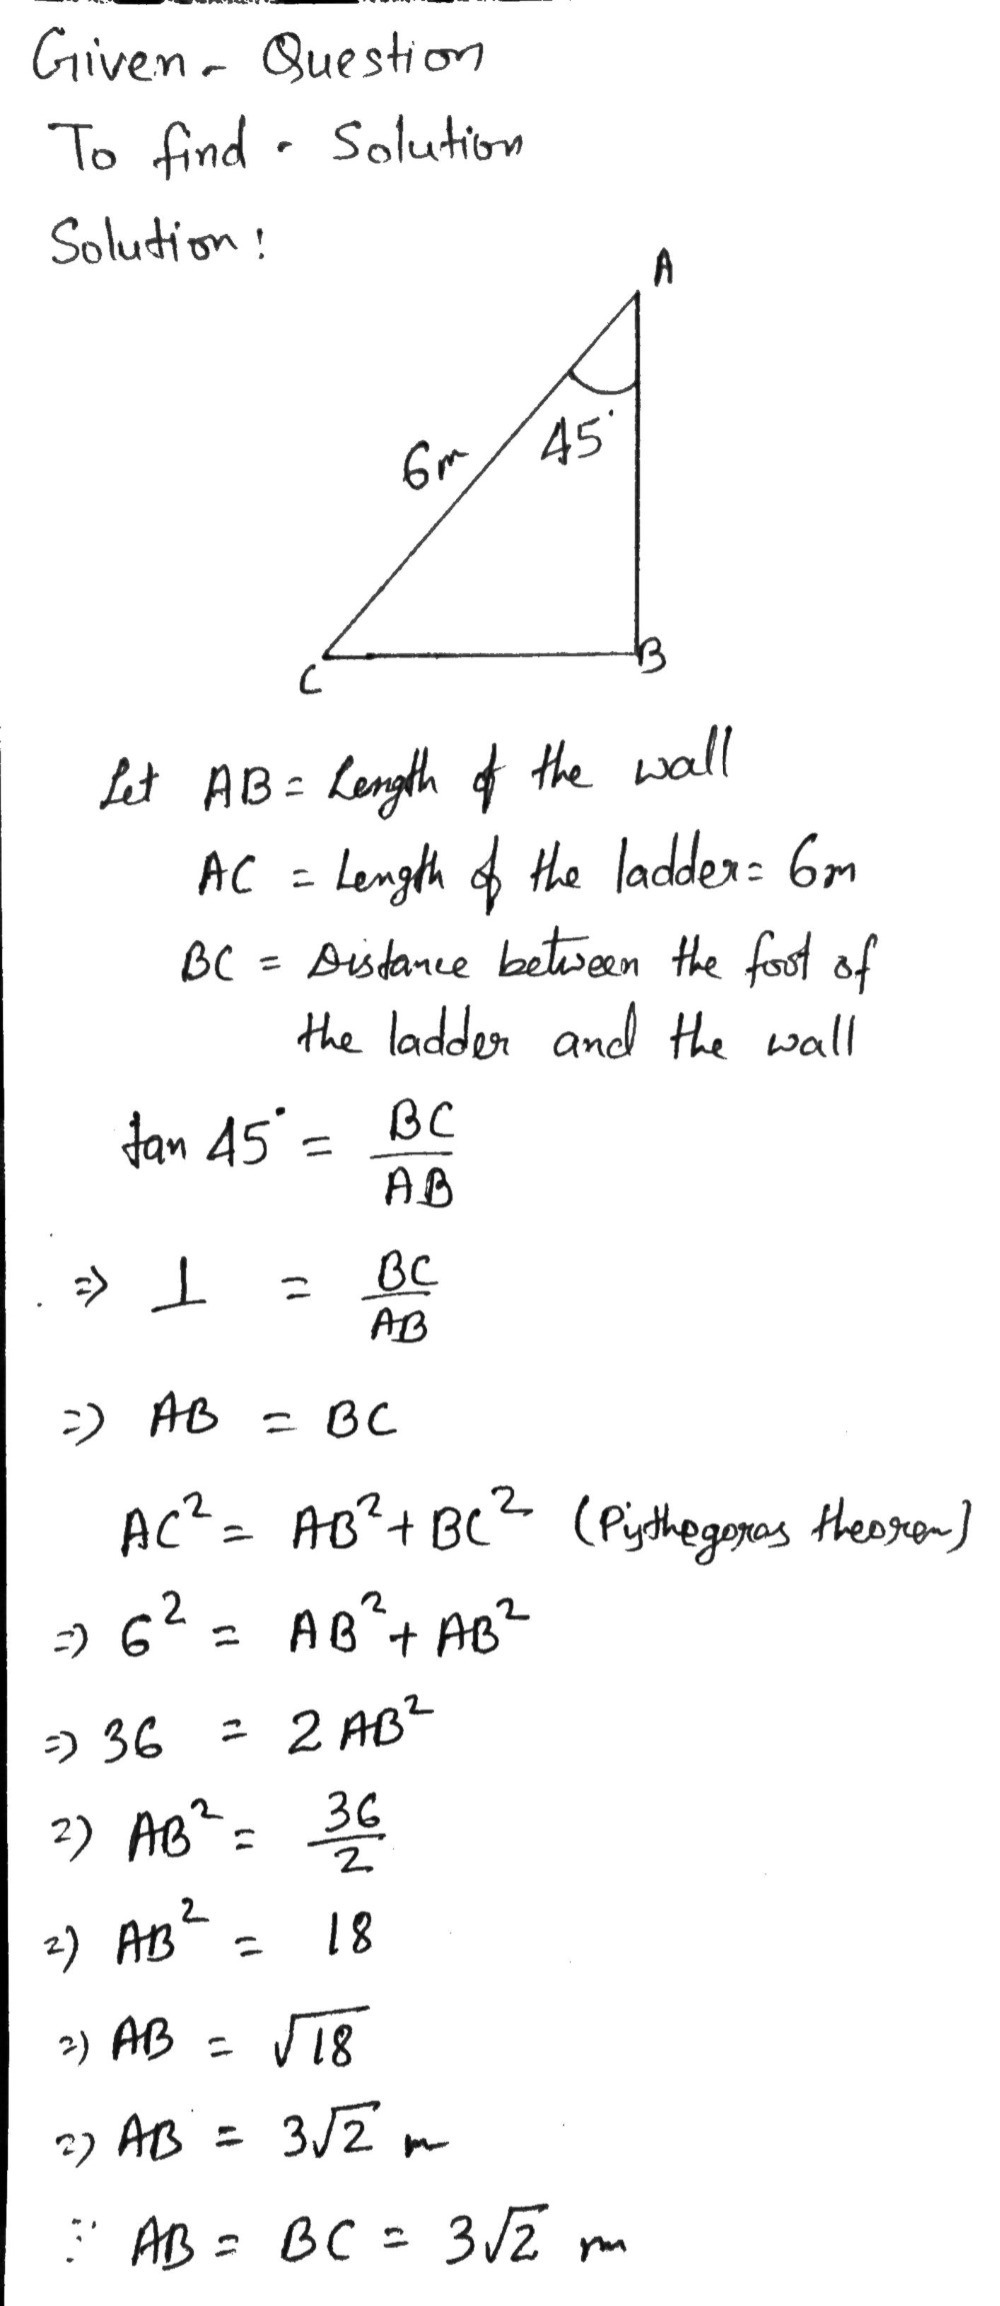 Given - Question
To find - Solution
Solution :
A
6m
45°
C
B
Let AB = Length of the wall
AC = Length of the ladder = 6m
BC = Distance between the foot of
the ladder and the wall
tan 45° = BC/AB
=> 1 = BC/AB
=> AB = BC
AC² = AB² + BC² (Pythegoras theorem)
=> 6² = AB² + AB²
=> 36 = 2 AB²
=> AB² = 36/2
=> AB² = 18
=> AB = √18
=> AB = 3√2 m
∵ AB = BC = 3√2 m